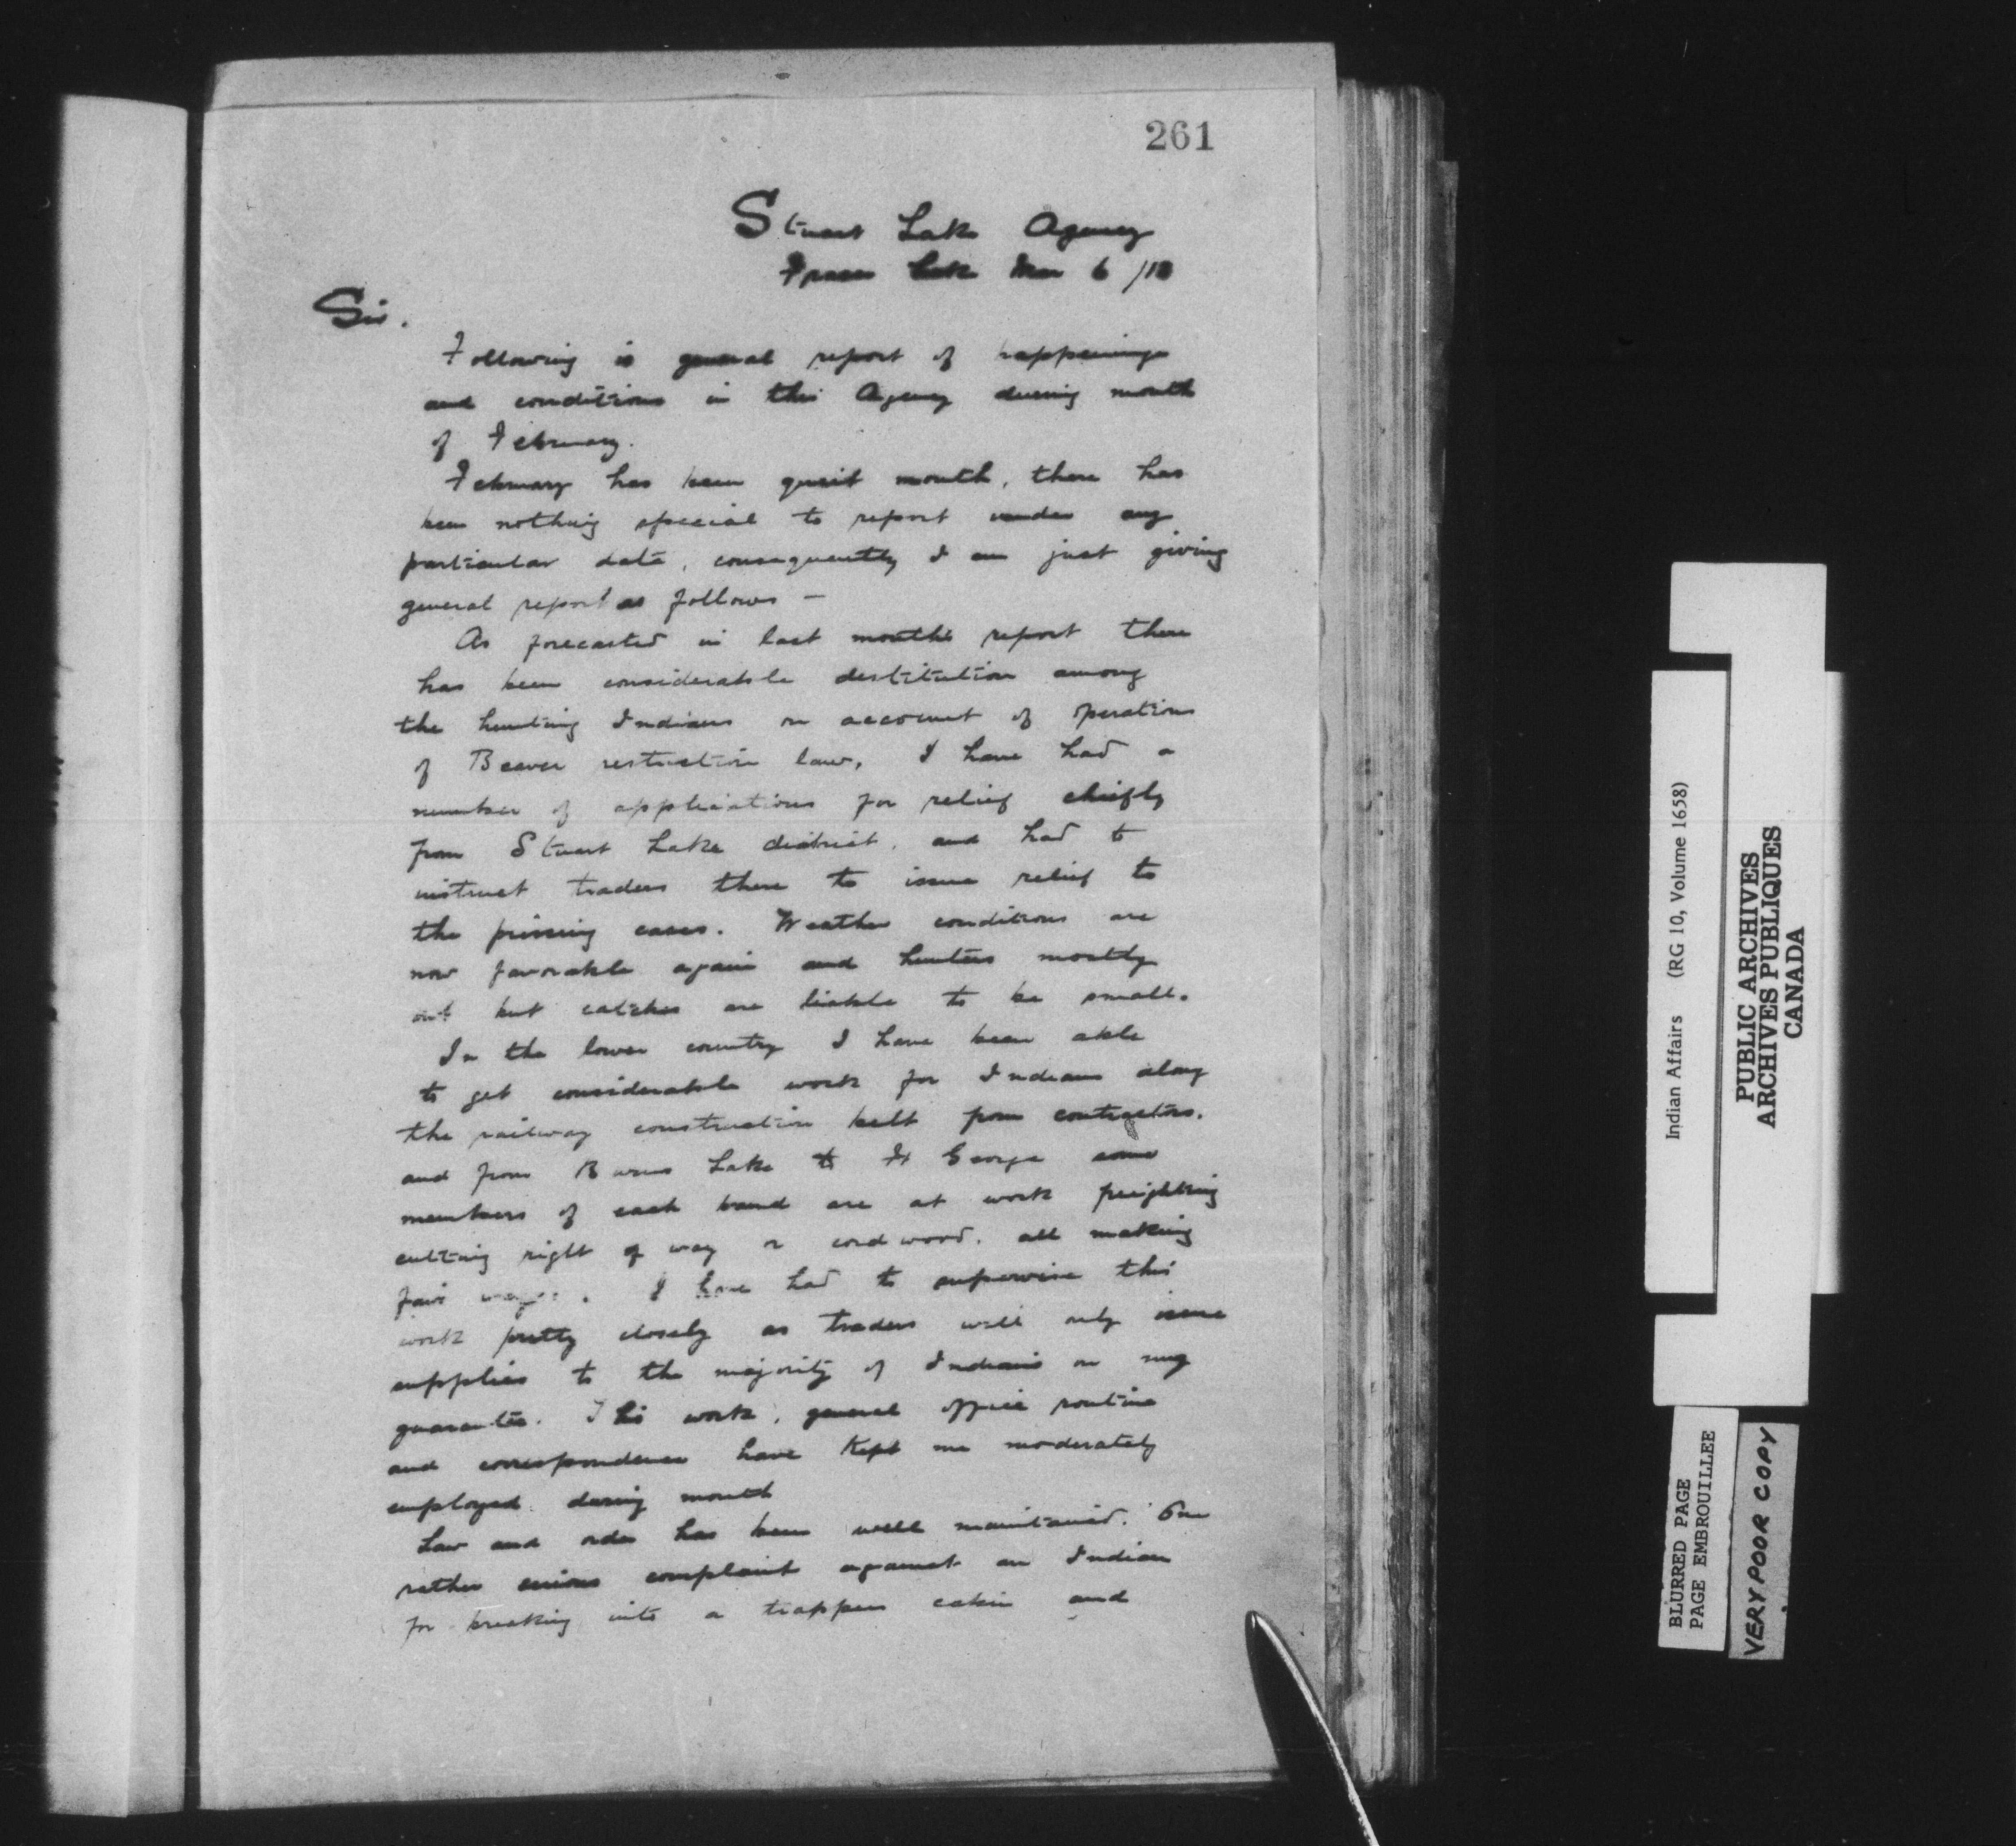 261
Stuart Lake Agency
Fraser Lake Mar 6 /13
Sir.
Following is general report of happenings
and conditions in this Agency during month
of February.
February has been queit month, there has
been nothing special to report under any
particular date, consequently I am just giving
general report as follows —
As forecasted in last months report there
has been considerable destitution among
the hunting Indians on account of operations
of Beaver restriction law. I have had a
number of applications for relief chiefly
from Stuart Lake district, and had to
instruct traders there to issue relief to
the pressing cases. Weather conditions are
now favorable again and hunters mostly
out but catches are liable to be small.
In the lower country I have been able
to get considerable work for Indians along
the railway construction belt from contractors.
and from Burns Lake to Ft George some
members of each band are at work freighting
cutting right of way or cord wood. all making
fair wages. I have had to supervise this
work pretty closely as traders will only issue
supplies to the majority of Indians on my
guarantee. This work, general office routine
and correspondence have kept me moderately
employed during month
Law and order has been well maintained. One
rather serious complaint against an Indian
for breaking into a trappers cabin and
Indian Affairs (RG 10, Volume 1658)
PUBLIC ARCHIVES
ARCHIVES PUBLIQUES
CANADA
BLURRED PAGE
PAGE EMBROUILLEE
VERY POOR COPY